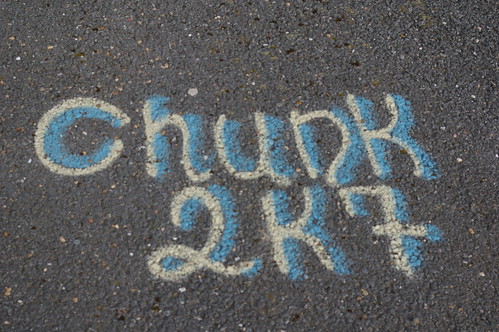 Chunk
2K7